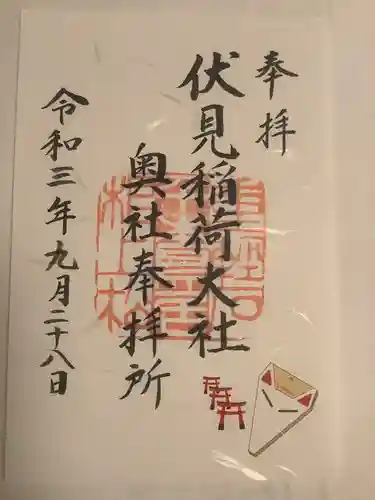 奉拝
伏見稲荷大社
奥社奉拝所
令和三年九月二十八日